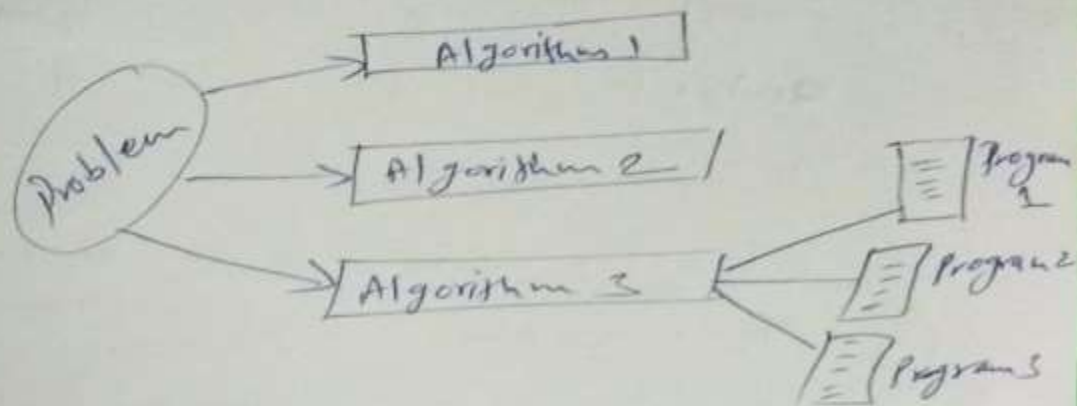 Problem
Algorithm 1
Algorithm 2
Algorithm 3
Program
1
Program 2
Program 3